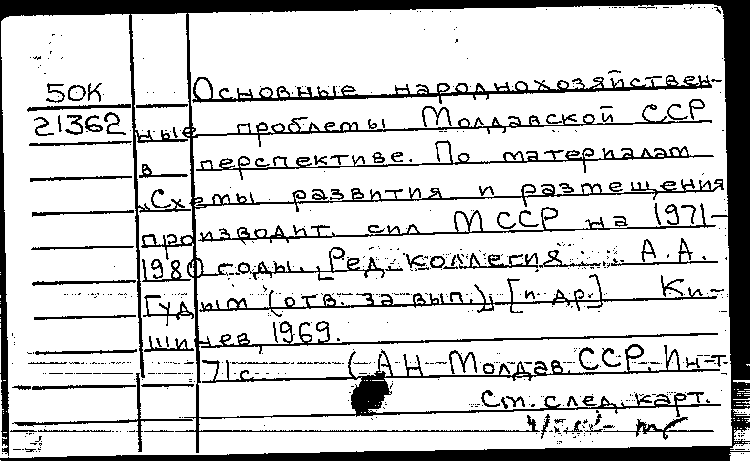 50К Основные народнохозяйствен-
21362 ные проблемы Молдавской ССР
в перспективе. По материалам
"Схемы развития и размещения
производит. сил МССР на 1971-
1980 годы. [Ред. коллегия А.А.
Гудым (отв. за вып.)] [и др.] Ки-
шинев, 1969.
71 с. (АН Молдав. ССР. Ин-т
Ст. след. карт.